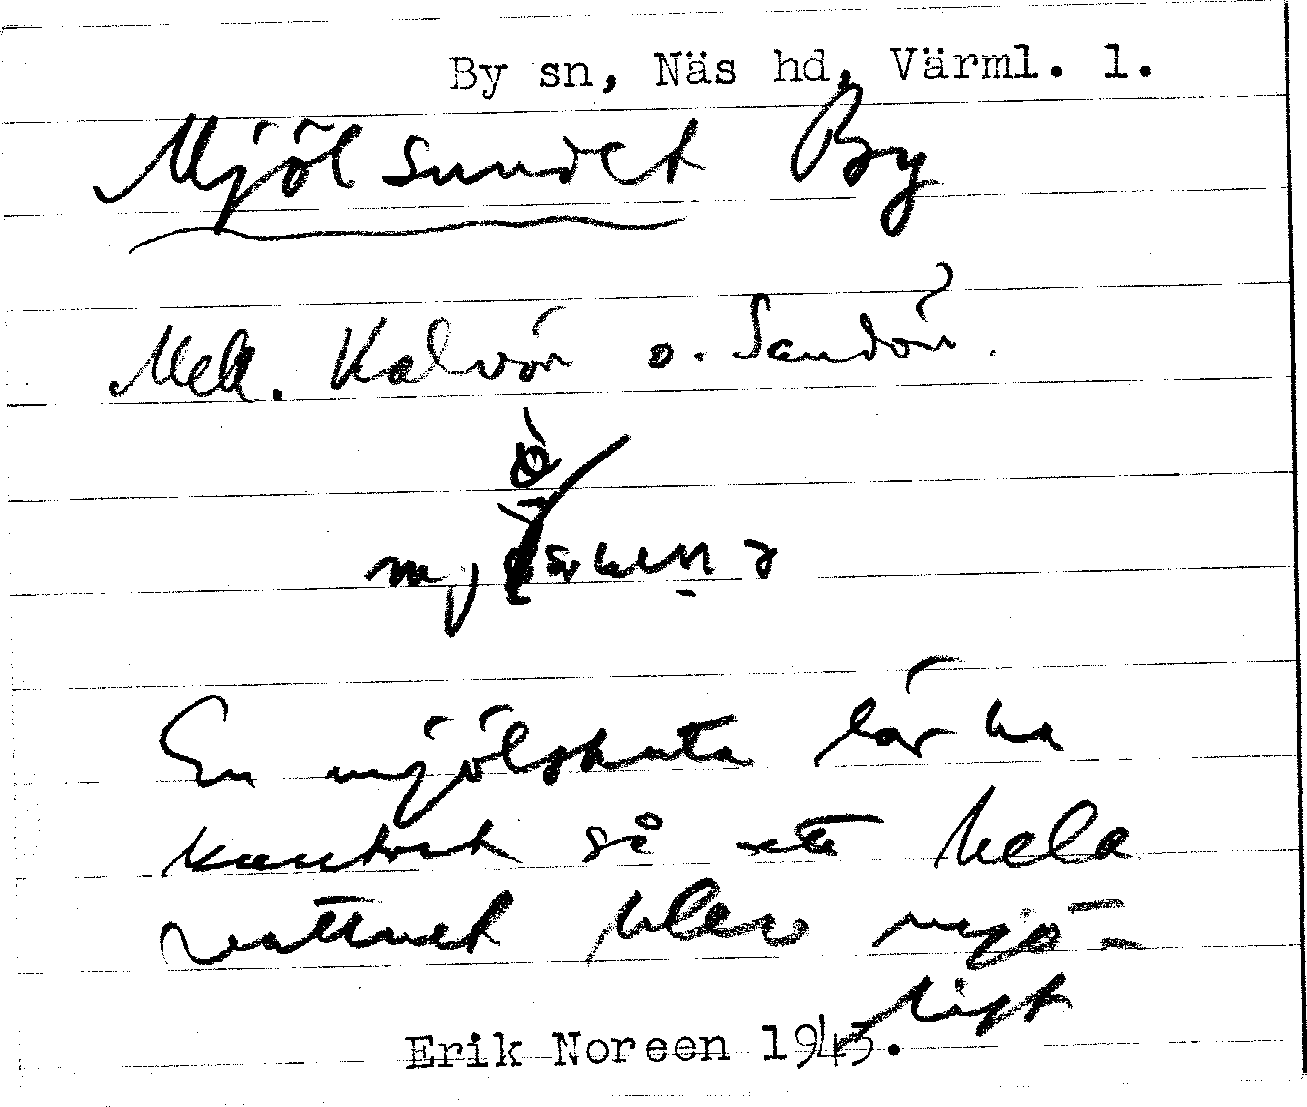 By sn, Näs hd, Värml. l.
Mjölsundet By
Mell. Kalvön o. Sandön.
En mjölskuta lär ha
kantrat så att hela
vattnet blev mjö-
ligt
Erik Noreen 1943.